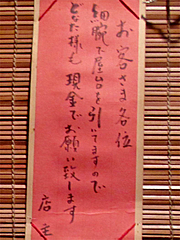 お客さま各位
細腕で屋台を引いてますので
どなた様も現金でお願い致します
店主